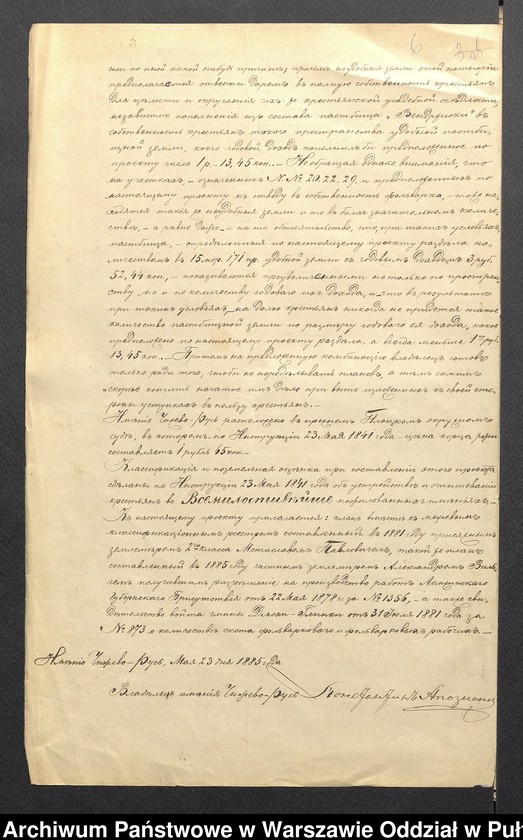 6
или по иной какой нибудь причине; причем неудобныя земли этой категории
предполагается отвести даром в полную собственность крестьян
для целости и округления их с крестьянской усадебной оседлости,
независимо пополнения из состава пастбища в
собственность крестьян такого пространства удобной пастби-
щной земли, коего годовой доход пополнил бы предположенное по
проекту число 1 р. 13,45 коп. — Необращая однако внимания, что
на участках, — означенных № № 20. 22. 29. и предположенных по
настоящему проекту к отводу в собственность фольварка, — тоже на-
ходятся такия же неудобныя земли и то в более значительном количе-
стве, — а равно и на то обстоятельство, что, при таких условиях,
пастбища, — определенныя по настоящему проекту раздела ко-
личеством в 15 мор. 171 пр. удобной земли с годовым доходом 3 руб.
52,44 коп., — показываются преувеличенными не только по простран-
ству, но и по количеству годоваго дохода, и что в результате
при таких условиях, на долю крестьян никогда не придется такое
количество пастбищной земли по размеру годоваго ея дохода, какое
предположено по настоящему проекту раздела, а всегда меньше 1 руб.
13,45 коп. — Притом на предложенную комбинацию владелец готов
только ради того, чтобы не переделывать планов, а тем самим
скорее кончить начатое им дело при выше изложенных с своей сто-
роны уступках в пользу крестьян. —
Имение Чижево-Русь расположено в прежнем Плоцком окружном
суде, в котором по Инструкции 23 Мая 1841 года цена корца ржи
составляет 1 рубль 45 коп. —
Классификация и поземельная оценка при составлении этого проекта
сделаны по Инструкции 23 Мая 1841 года об устройстве и очиншевании
крестьян в Всемилостивейше пожалованных имениях. —
К настоящему проекту прилагается: план вместе с мерным
классификационным реестром составленный в 1881 году присяжным
землемером 2го класса Мечиславом Павловичем, такой же план
составленный в 1885 году частным землемером Александром
получившим разрешение на производство работ Ломжинскаго
Губернскаго Присутствия от 22 Мая 1878 г. за № 1356, — а также сви-
детельство войта гмины от 31 Июля 1881 года за
№ 873 о количестве скота фольварковаго и фольварковых рабочих. —
Имение Чижево-Русь, Мая 23 дня 1885 года
Владелец имения Чижево-Русь